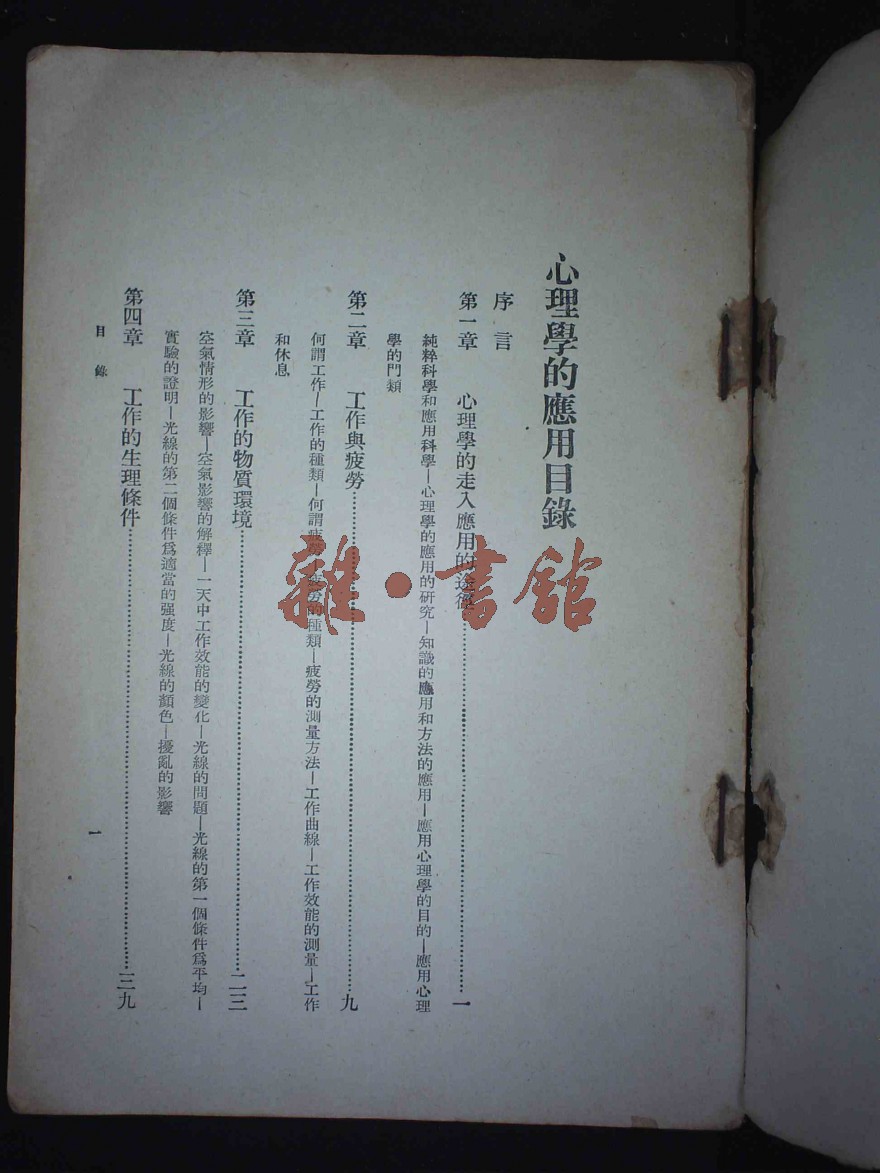 心理學的應用目錄
序言
第一章 心理學的走入應用的途徑……一
純粹科學和應用科學—心理學的應用的研究—知識的應用和方法的應用—應用心理學的目的—應用心理
學的門類
第二章 工作與疲勞……九
何謂工作—工作的種類—何謂疲勞—疲勞的種類—疲勞的測量方法—工作曲線—工作效能的測量—工作
和休息
第三章 工作的物質環境……二三
空氣情形的影響—空氣影響的解釋—一天中工作效能的變化—光線的問題—光線的第一個條件爲平均—
實驗的證明—光線的第二個條件爲適當的强度—光線的顏色—擾亂的影響
第四章 工作的生理條件……三九
目錄
一
雜·書館